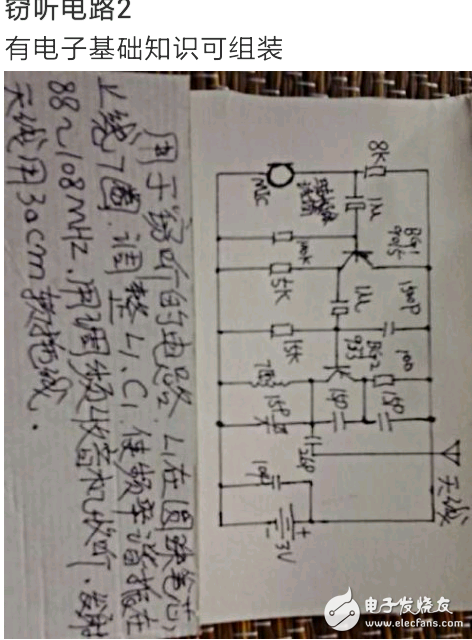 窃听电路2
有电子基础知识可组装
8K
1u
MIC
BG1
9015
100K
5K
1u
15K
BG2
100
7圈
15P
10P
3V
天线
用于窃听的电路. L1在圆珠笔芯
上绕7圈.调整L1.C1.使频率谐振在
88~108MHz.用调频收音机收听.发射
天线用30cm软拖线.
电子发烧友
www.elecfans.com